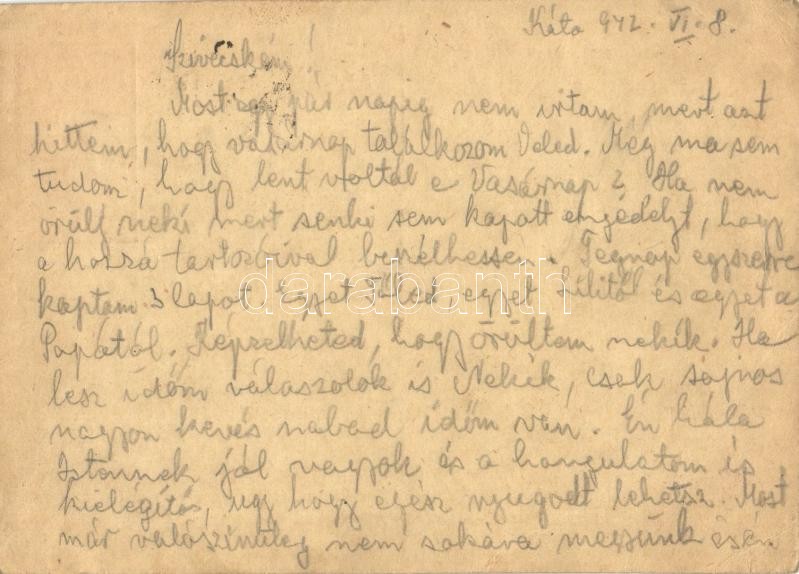 Káta 942. VI. 8.
Szivecském!
Most egy pár napig nem irtam, mert azt
hittem, hogy vasárnap találkozom Veled. Még ma sem
tudom, hogy lent voltál e Vasárnap? Ha nem
örülj neki mert senki sem kapott engedélyt, hogy
a hozzá tartozóival beszélhessen. Tegnap egyszerre
kaptam 3 lapot. Egyet Tőled, egyet Lilitől és egyet a
Papától. Képzelheted, hogy örültem nekik. Ha
lesz időm válaszolok is Nekik, csak sajnos
nagyon kevés szabad időm van. Én hála
Istennek jól vagyok és a hangulatom is
kielégítő, ugy hogy egész nyugodt lehetsz. Most
már valószinüleg nem sokára megyünk
darabanth.com